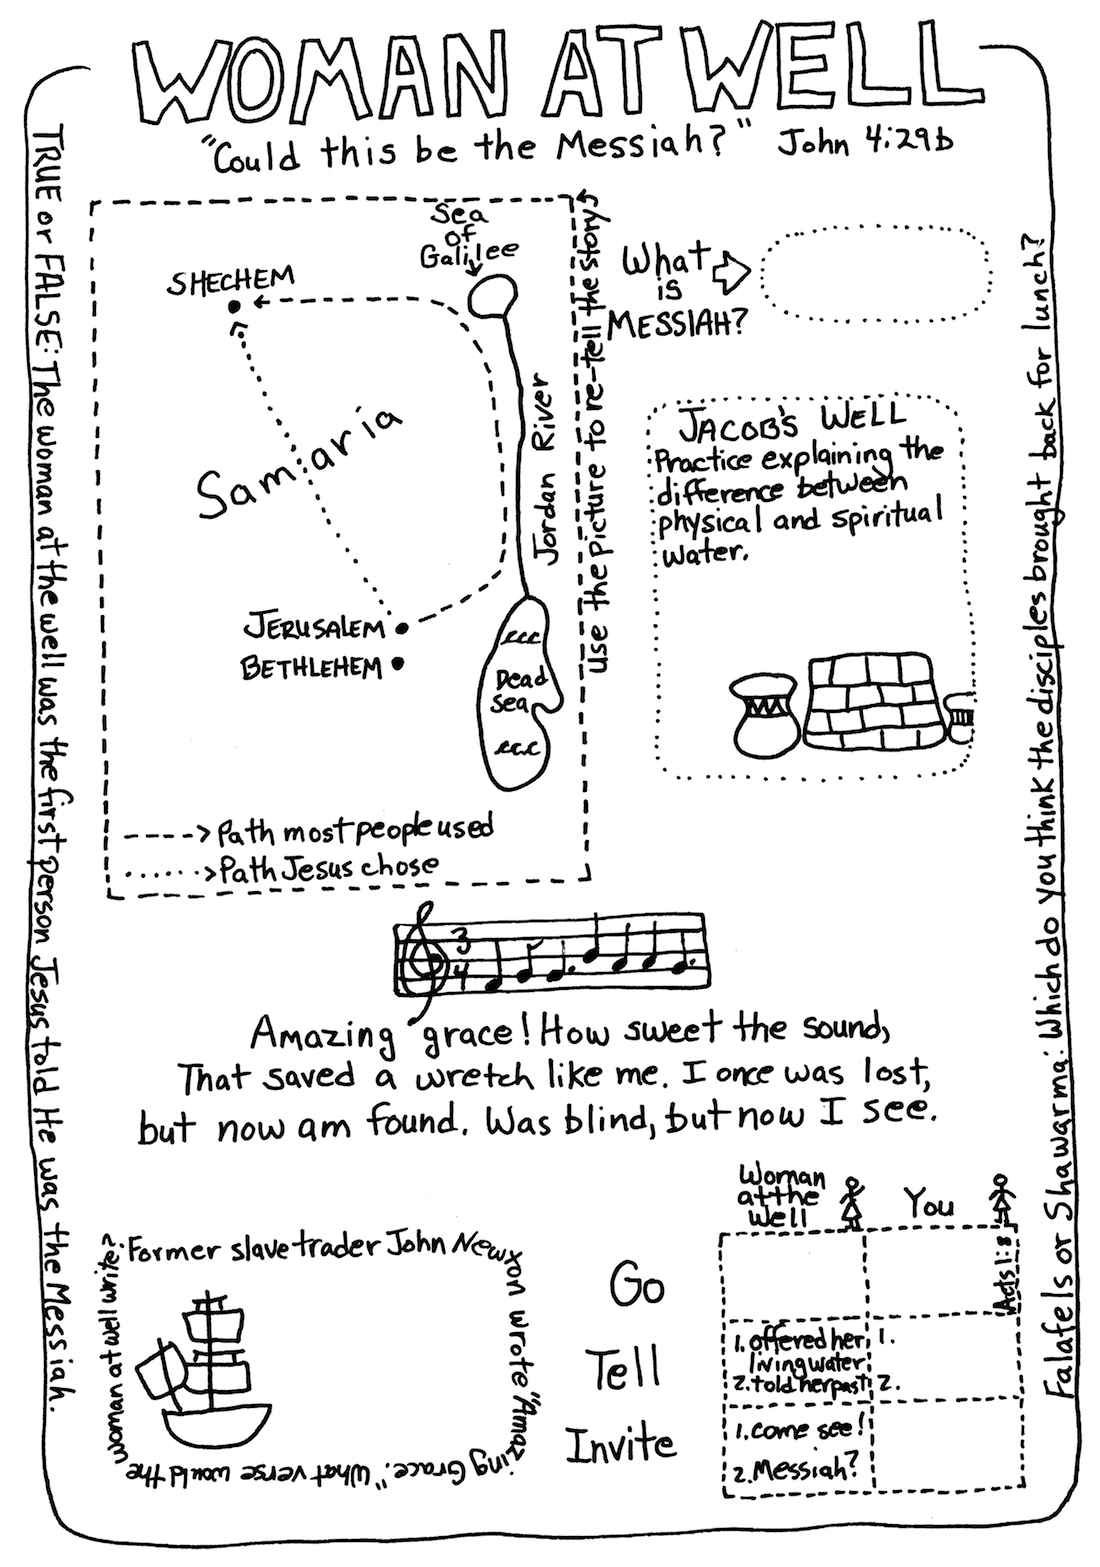 WOMAN AT WELL
"Could this be the Messiah?" John 4:29b
TRUE or FALSE: The woman at the well was the first person Jesus told He was the Messiah.
Sea
of
Galilee
SHECHEM
Samaria
Jordan River
JERUSALEM
BETHLEHEM
Dead
Sea
Path most people used
Path Jesus chose
Use the picture to re-tell the story
What
is
MESSIAH?
JACOB'S WELL
Practice explaining the
difference between
physical and spiritual
water.
Falafels or Shawarma: Which do you think the disciples brought back for lunch?
3
4
Amazing grace! How sweet the sound,
That saved a wretch like me. I once was lost,
but now am found. Was blind, but now I see.
Former slave trader John Newton wrote "Amazing Grace." What verse would the woman at well write?
Woman
at the
Well
You
Go
Acts 1:8
Tell
1. offered her
living water
2. told her past
1.
2.
Invite
1. come see!
2. Messiah?